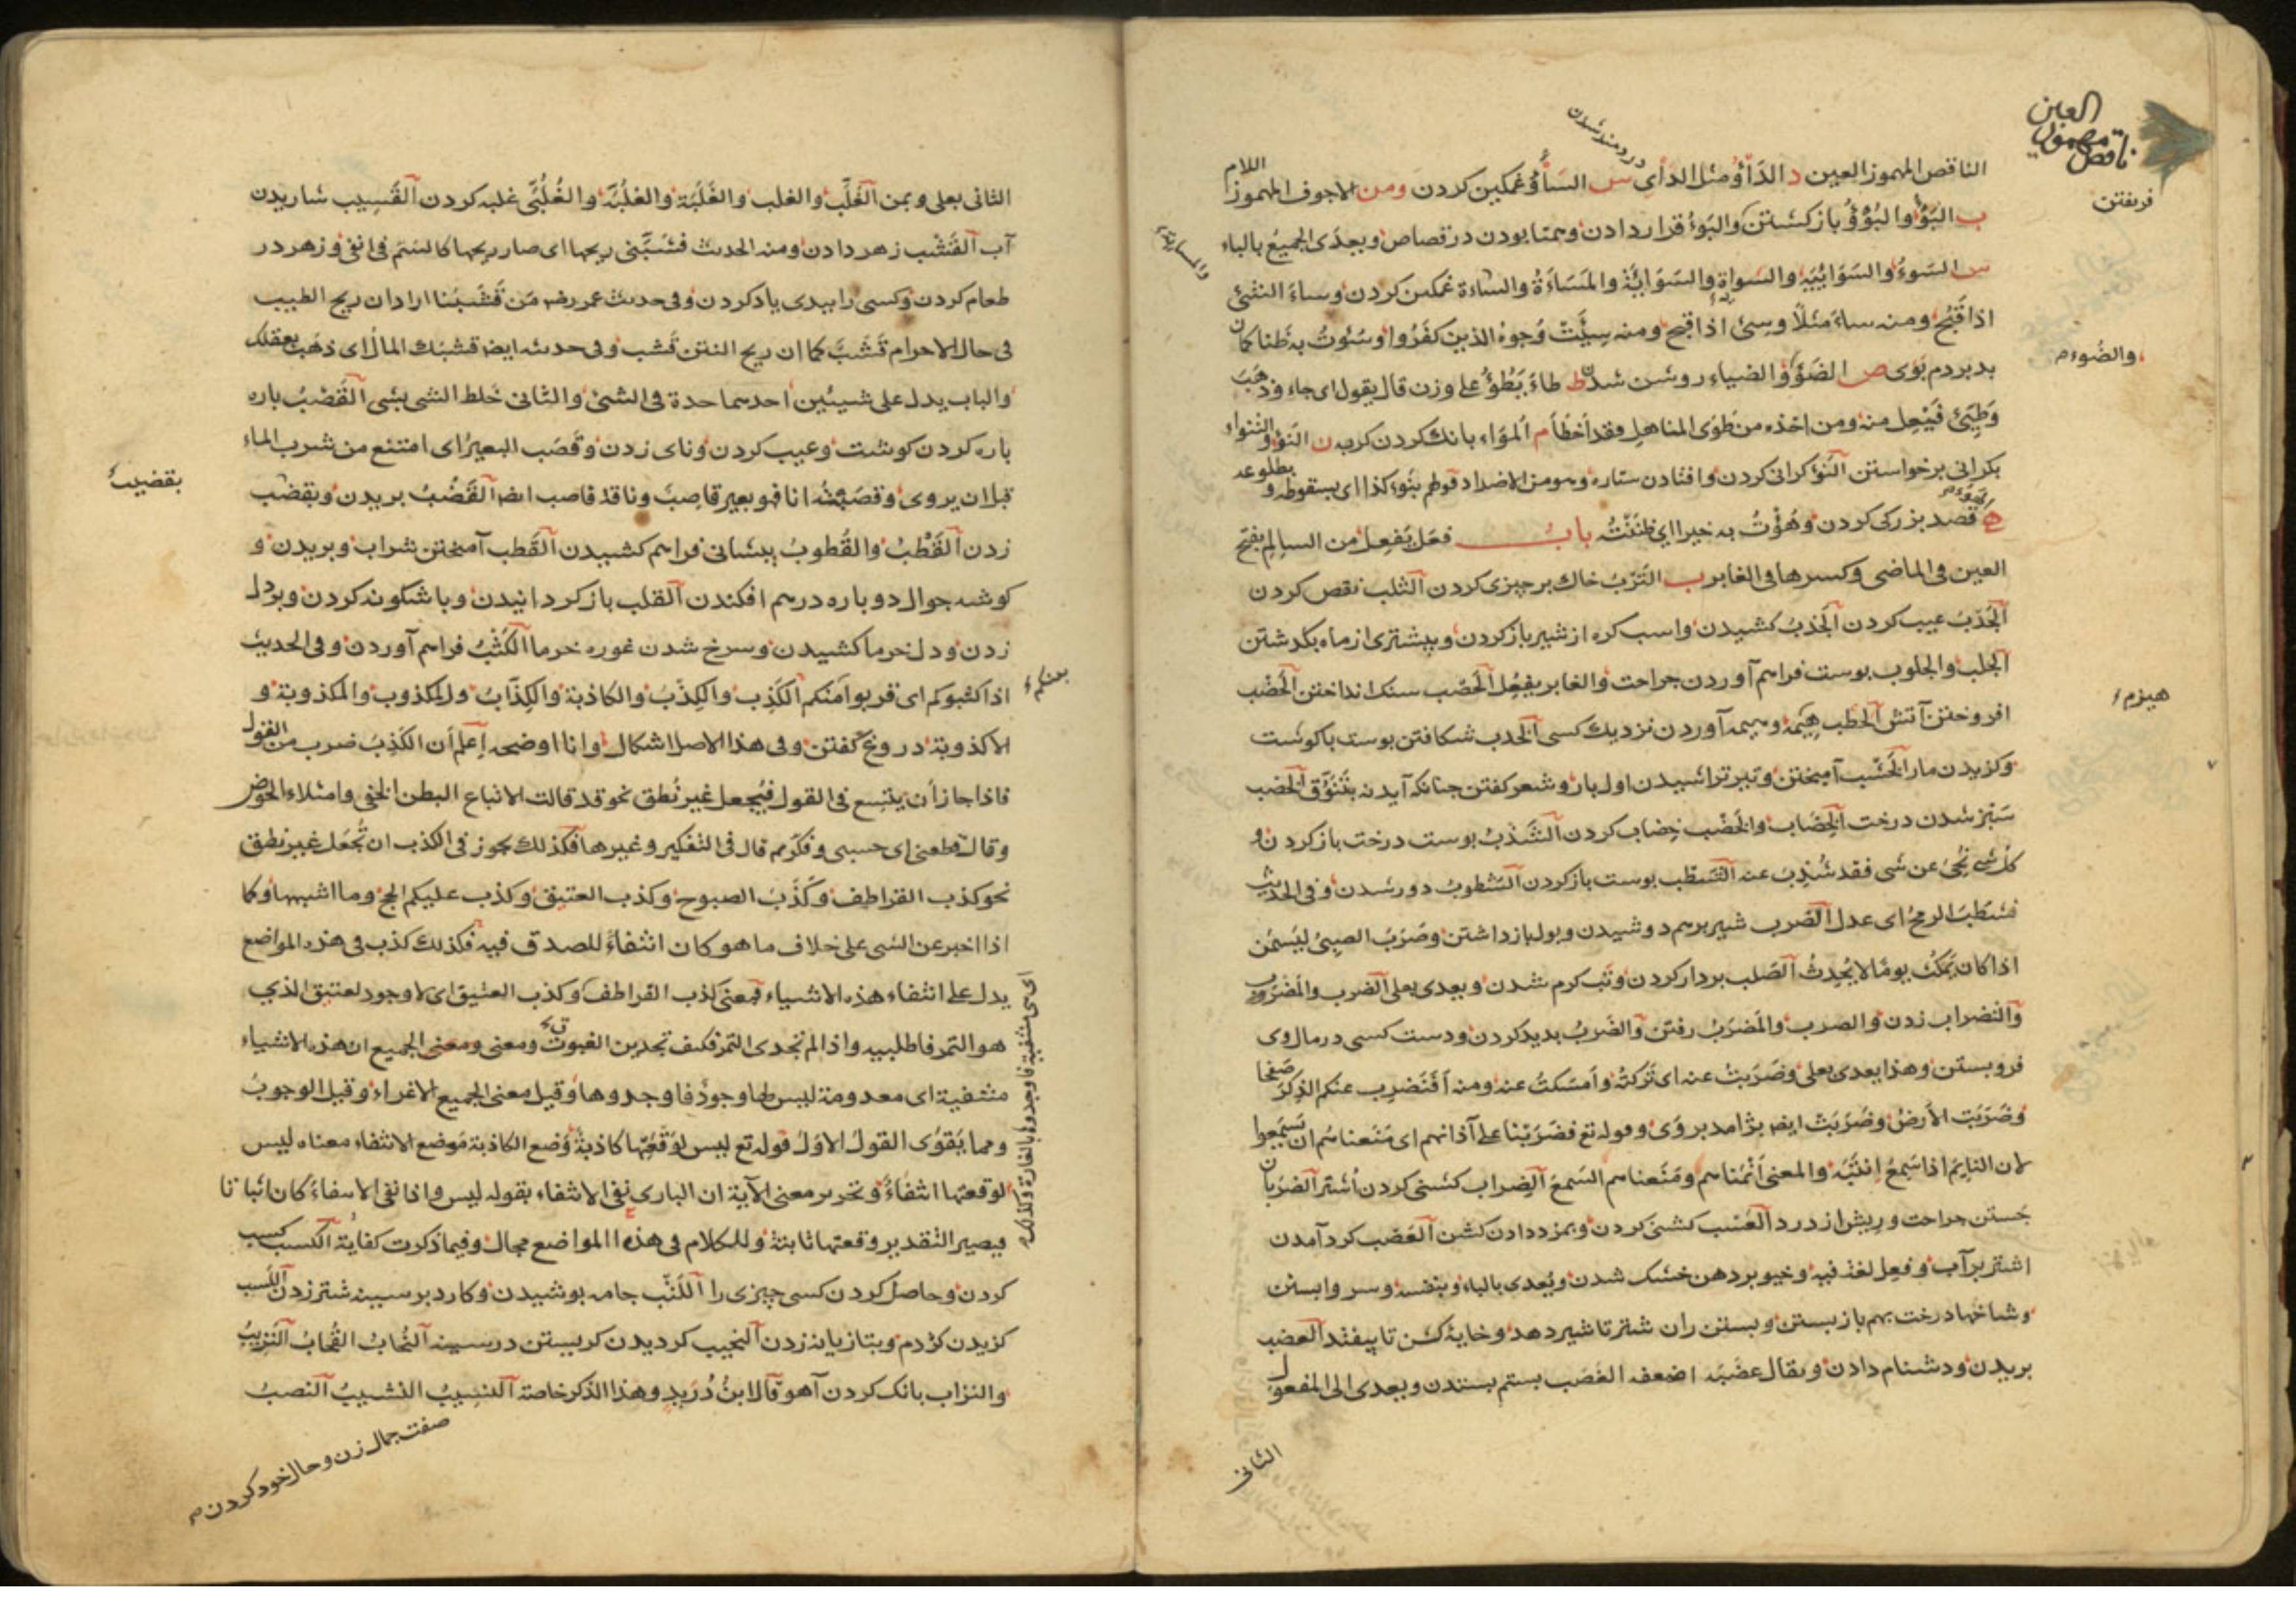 العين
ناقص مهموز
فريفتن
دردمند شدن
الناقص المهموز العين د الدَأوُ مثل الدأي س السَأوُ غمكين كردن ومن الاجوف المهموز اللام
ب البَوْءُ والبُوُؤُ باز كشتن والبَوءُ قرار دادن وهمتا بودن در قصاص ويعدى الجميعُ بالباء
س السَوءُ والسَوَائِيَة والسواة والسَوَايَةُ والمَسَاءَةُ والساءة غمكين كردن وساءَ الشئ
اذا قَبُح ومنه ساءَ مَثَلًا وسِئ اذا قبح ومنه سِيئَتْ وُجوهُ الذين كفَرُوا وسُئوتُ به ظنا كان
بد بردم بوى ص الضَوْءُ والضياء روشن شدن ط طاءَ يَطُؤُ على وزن قال يقول اى جاء وذهَبَ
والضُوء م
وَطَيِّئ فَيْعِل منه ومن اخذه من طَوَى المناهل فقد اَخْطَأ م المُوَاء بانك كردن كربه ن النَوْءُ والتنواء
بكرانى برخواستن النَوْءُ كرانى كردن وافتادن ستاره وهو من الاضداد قولهم بنَوء كذا اى بسقوطه وبطلوعه
ه قصد بزركى كردن وهُؤْتُ به خيرا اى ظنَنْتُ باب فعَل يَفعِل من السالم بفتح
العين فى الماضى وكسرها فى الغابر ب التَرْبُ خاك بر چيزى كردن الثلب نقص كردن
الجَدْبُ عيب كردن الجَذبُ كشيدن واسب كره از شير باز كردن وبيشترى از ماه بكذشتن
الجلب والجلوب پوست فراهم آوردن جراحت والغابر يفعُل الحَصْب سنك انداختن الحَضْب
هيزم
افروختن آتش الحَطب هيمه وهيمه آوردن نزديك كسى الخَدب شكافتن پوست با كوشت
وكزيدن مار الخَشْب آميختن وتير تراشيدن اول بار وشعر كفتن چنانكه آيد نه بتَنَوُّق الخَضب
سَبْز شدن درخت الخِضَاب والخَضْب خِضاب كردن الشَذْبُ پوست درخت باز كردن و
كلُ شئ نُحِّىَ عن شى فقد شُذِبَ عنه الشَطْب پوست باز كردن الشُطوبُ دور شدن وفى الحديث
فشطَبَ الرمحُ اى عدل الضَرب شير برهم دوشيدن وبول باز داشتن وضَرَبَ الصبىُ ليَسْمَن
اذا كان يَمكُث يومًا لا يُحدِثُ الصَلب بردار كردن وتب كرم شدن ويعدى بعلى الضرب والمَضْروب
والتضراب زدن والضرب والمَضرَبُ رفتن والضَربُ پديد كردن ودست كسى در مال وى
فروبستن وهذا يعدى بعلى وضَرَبتُ عنه اى تَركتُه وامسَكتُ عنه ومنه اَفَنَضرِب عنكم الذِكرَ صَفْحًا
وضَرَبَت الارضُ وضُرِبَت ايضا بژ آمد بر وَى وقوله تع فضَرَبْنا على آذانهم اى مَنَعناهُم ان يَسْمَعوا
لان النايِم اذا سَمِعَ اِنتَبَه والمعنى اَنَمْناهم ومَنَعناهم السَمعَ الضِراب كشنى كردن اُشتر الضَرَبان
جَستن جراحت وريش از درد العَسْب كشنى كردن وبمزد دادن كشن العَصْب كرد آمدن
اشتر بر آب وفعِل لغة فيه وخيو بر دهن خشك شدن ويُعدى بالباء وبنفسه وسر وابستن
وشاخها درخت بهم باز بستن وبستن ران شتر تا شير دهد وخايهٔ كشن تا بيفتد العضب
بريدن ودشنام دادن ويقال عضَبَه اضعفه الغَصْب بستم بستدن ويعدى الى المفعول
الثانى
الثانى بعلى وبمن الغَلْب والغلب والغَلَبَة والغلُبَّة والغُلُبَّى غلبه كردن القَسِيب شاريدن
آب القَشْب زهر دادن ومنه الحديث فشَبَّنى ريحها اى صار ريحها كالسَمّ فى انفى وزهر در
طعام كردن وكسى را ببدى ياد كردن وفى حديث عمر رضه مَن قَشَبَنا اراد ان ريح الطيب
فى حال الاحرام قَشَبَ كما ان ريح النتن قَشب وفى حديثه ايضا قشبَك المالُ اى ذهَب بعقلك
والباب يدل على شيئين احدهما حدة فى الشئ والثانى خَلط الشى بشى القَصْبُ پاره
پاره كردن كوشت وعيب كردن وناى زدن وقصَب البعيرُ اى امتنع من شرب الماء
قبل ان يروى وقصَبْتُه انا فهو بعير قاصِبٌ وناقة قاصب ايضا القَضْبُ بريدن وبقضيب
بقضيب
زدن القَطْبُ والقُطوبُ پيشانى فراهم كشيدن القَطب آميختن شراب وبريدن و
كوشه جوال دوباره درهم افكندن القلب باز كردانيدن وباشكونه كردن وبر دل
زدن ودل خرما كشيدن وسرخ شدن غوره خرما الكَثْبُ فراهم آوردن وفى الحديث
اذا كثبوكم اى قربوا منكم الكَذِب والكِذْبُ والكاذبة والكِذَّابُ والمكذوب والمكذوبة و
الاكذوبة دروغ كفتن وفى هذا الاصل اشكال وانا اوضحه اِعلَم اَن الكَذِبَ ضرب من القول
فاذا جاز اَن يتسع فى القول فيُجعل غير نُطق نحو قد قالت الانباع البطن الحق وامتلاء الحوض
وقال قطعنى اى حسبى وفكَرهم قال فى التفكير وغيرها فكذلك يجوز فى الكذب ان تُجعَل غير نطق
نحو كذب القراطف وكَذَبَ الصبوح وكذب العتيق وكذب عليكم الحج وما اشبهها وكما
اذا اخبر عن الشى على خلاف ما هو كان انتفاءً للصدق فيه فكذلك كذب فى هذه المواضع
يدل على انتفاء هذه الاشياء فمعنى كذب القراطف وكذب العتيق اى لا وجود لعتيق الذى
هو التمر فاطلبيه واذا لم تجدى التمر فكيف تجدين الغبوق ومعنى ومعنى الجميع ان هذه الاشياء
منتفية اى معدومة ليس لها وجودٌ فاوجدوها وقيل معنى الجميع الاغراء وقيل الوجوبُ
ومما يَقوى القولُ الاولُ قوله تع ليس لوَقْعَتِها كاذبةٌ وُضع الكاذبة مَوضع الانتفاء معناه ليس
لوقعتها انتفاءٌ وتحرير معنى الآية ان البارى نفى الانتفاء بقوله ليس واذا نفى الانتفاءَ كان اثباتا
فيصير التقدير وقعتها ثابتة وللكلام فى هذه المواضع مجال وفيما ذكرت كفاية الكسب كسب
كردن وحاصل كردن كسى چيزى را اللَتْب جامه پوشيدن وكارد بر سينه شتر زدن اللسب
كزيدن كژدم وبتازيانه زدن النحيب كرديدن كريستن در سينه النُحابُ القُحابُ النَزيبُ
والنزاب بانك كردن آهو قال ابنُ دُرَيدٍ وهذا الذكر خاصة النسِيبُ النشيبُ النصبُ
صفت جمال زن وحال خود كردن م